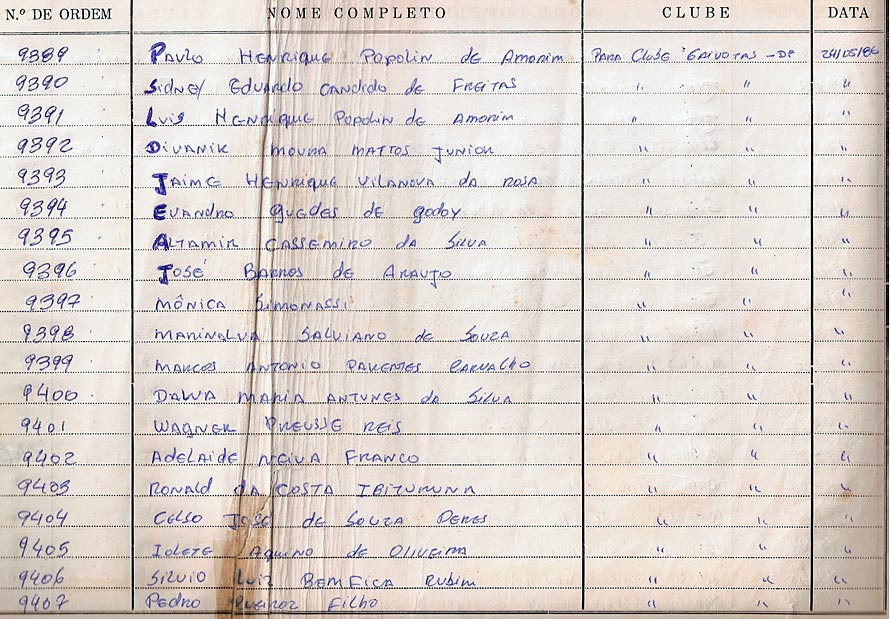 N.º DE ORDEM NOME COMPLETO CLUBE DATA
9389 Paulo Henrique Popolin de Amorim Para Clube Gaivotas - DF 24/05/86
9390 Sidney Eduardo Candido de Freitas " " "
9391 Luis Henrique Popolin de Amorim " " "
9392 Divanir Moura Mattos Junior " " "
9393 Jaime Henrique Vilanova da Rosa " " "
9394 Evandro Guedes de Godoy " " "
9395 Altamir Cassemiro da Silva " " "
9396 José Barros de Araujo " " "
9397 Mônica Simonassi " " "
9398 Marinalva Salviano de Souza " " "
9399 Marcos Antonio Parentes Carvalho " " "
9400 Dalva Maria Antunes da Silva " " "
9401 Wagner Preusse Reis " " "
9402 Adelaide Neiva Franco " " "
9403 Ronald da Costa Ibituruna " " "
9404 Celso José de Souza Peres " " "
9405 Iolete Aquino de Oliveira " " "
9406 Silvio Luiz Bemfica Rubim " " "
9407 Pedro Queiroz Filho " " "